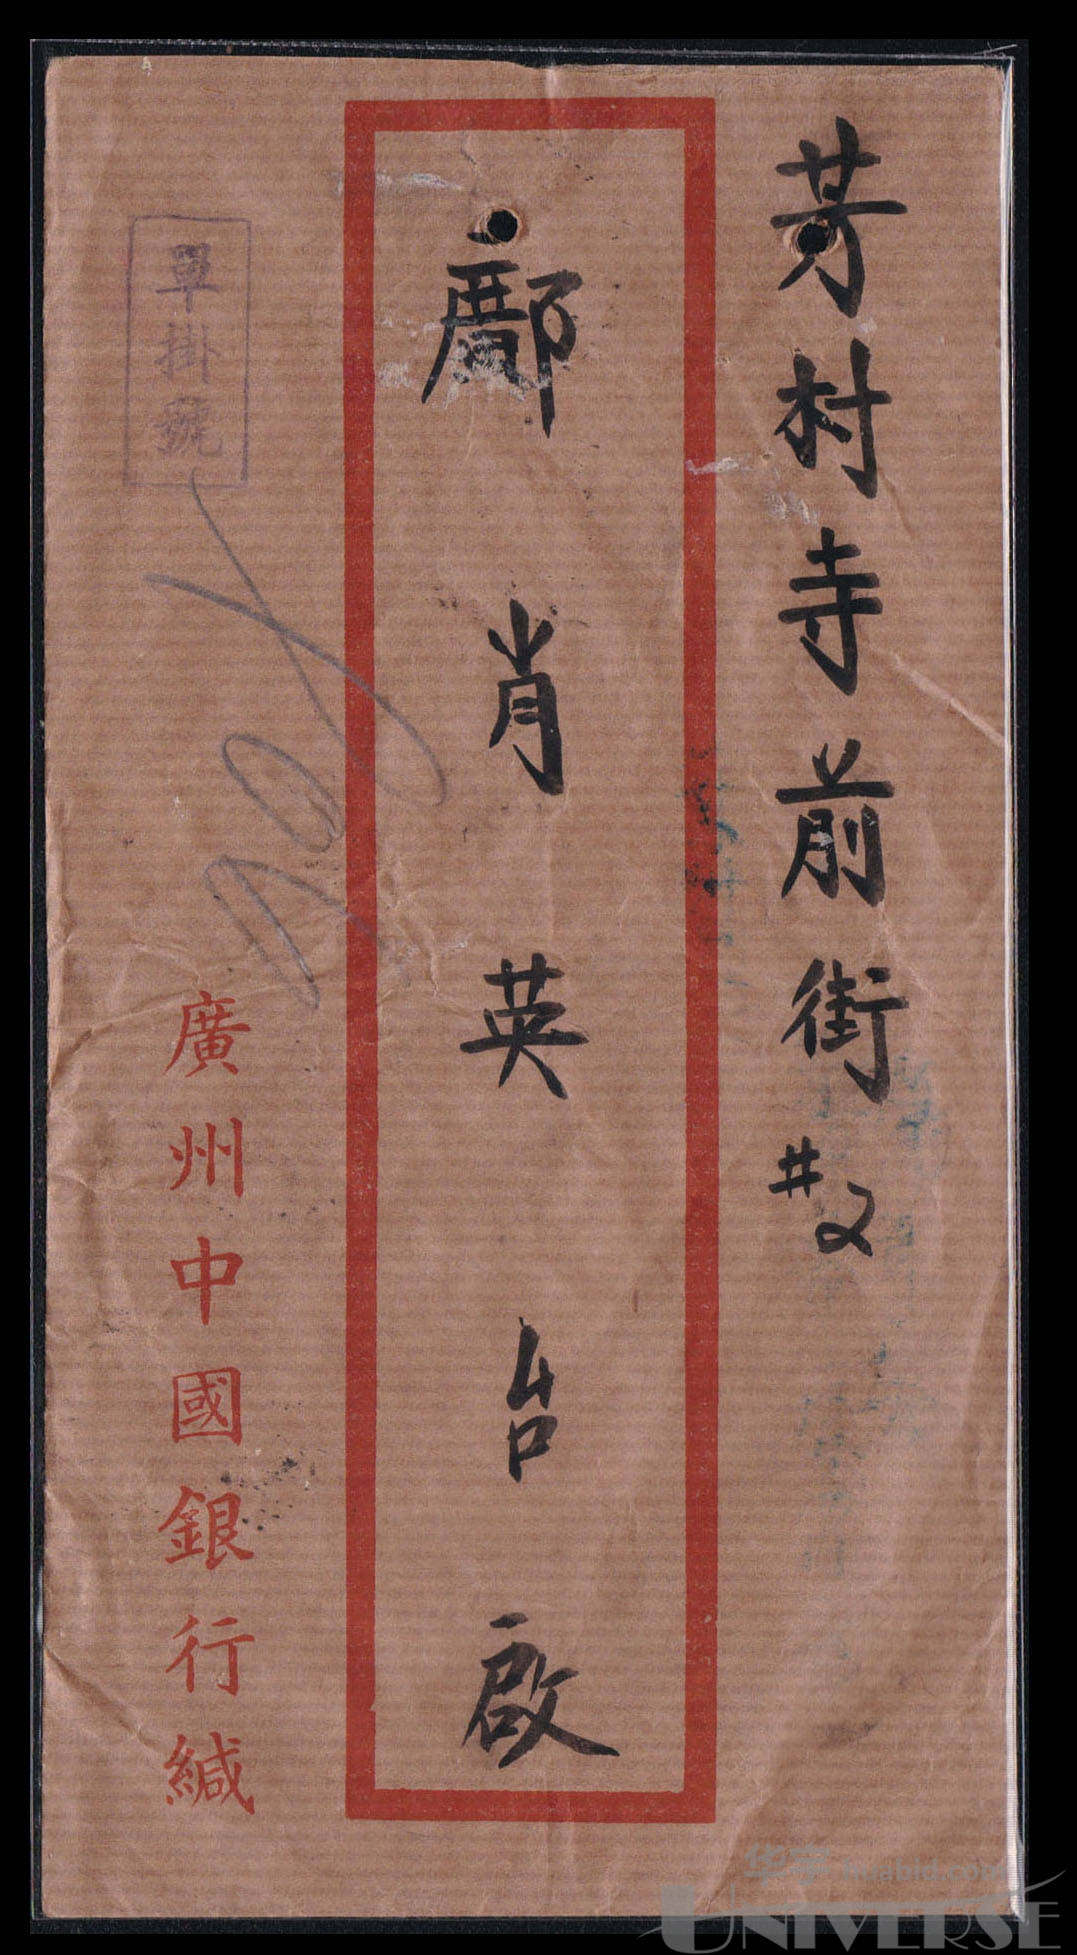 芳村寺前街#2
鄺肖英台啟
單掛號
廣州中國銀行緘
华宇 huabid.com
UNIVERSE